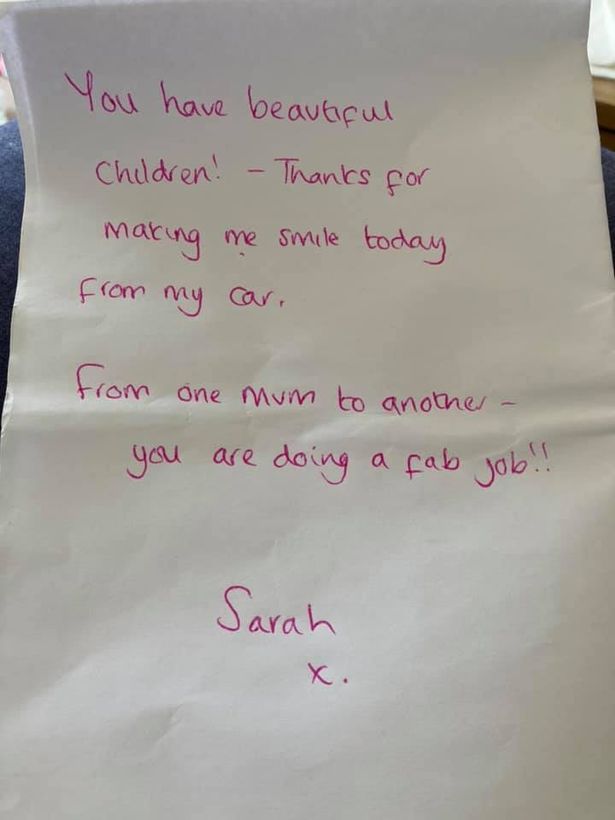 You have beautiful
Children! - Thanks for
making me smile today
from my car.
From one mum to another -
you are doing a fab job!!
Sarah
x.